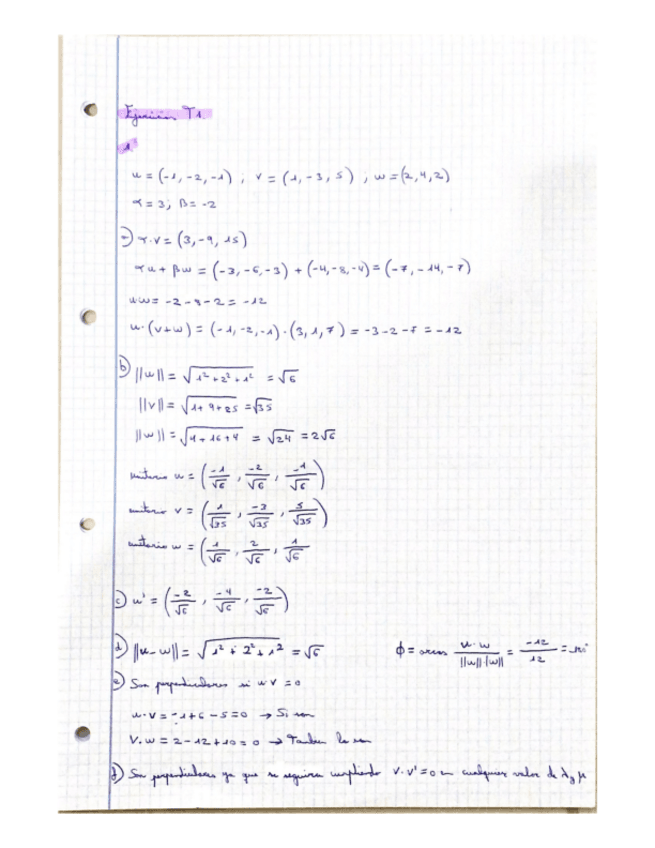 Ejercicios T1
1
u = (-1, -2, -1) ; v = (1, -3, 5) ; w = (2, 4, 2)
α = 3; β = -2
a) α·v = (3, -9, 15)
αu + βw = (-3, -6, -3) + (-4, -8, -4) = (-7, -14, -7)
u·w = -2 - 8 - 2 = -12
u·(v+w) = (-1, -2, -1)·(3, 1, 7) = -3 - 2 - 7 = -12
b) ||u|| = √(1² + 2² + 1²) = √6
||v|| = √(1 + 9 + 25) = √35
||w|| = √(4 + 16 + 4) = √24 = 2√6
unitario u = (-1/√6, -2/√6, -1/√6)
unitario v = (1/√35, -3/√35, 5/√35)
unitario w = (1/√6, 2/√6, 1/√6
c) u' = (-2/√6, -4/√6, -2/√6)
d) ||u - w|| = √(1² + 2² + 1²) = √6 φ = arcos u·w/||u||·||w|| = -12/12 =
e) Son perpendiculares si u·v = 0
u·v = -1 + 6 - 5 = 0 → Si son
v·w = 2 - 12 + 10 = 0 → Tambien lo son
f) Son perpendiculares ya que se seguira cumpliendo v·v' = 0 en cualquier valor de λ y μ